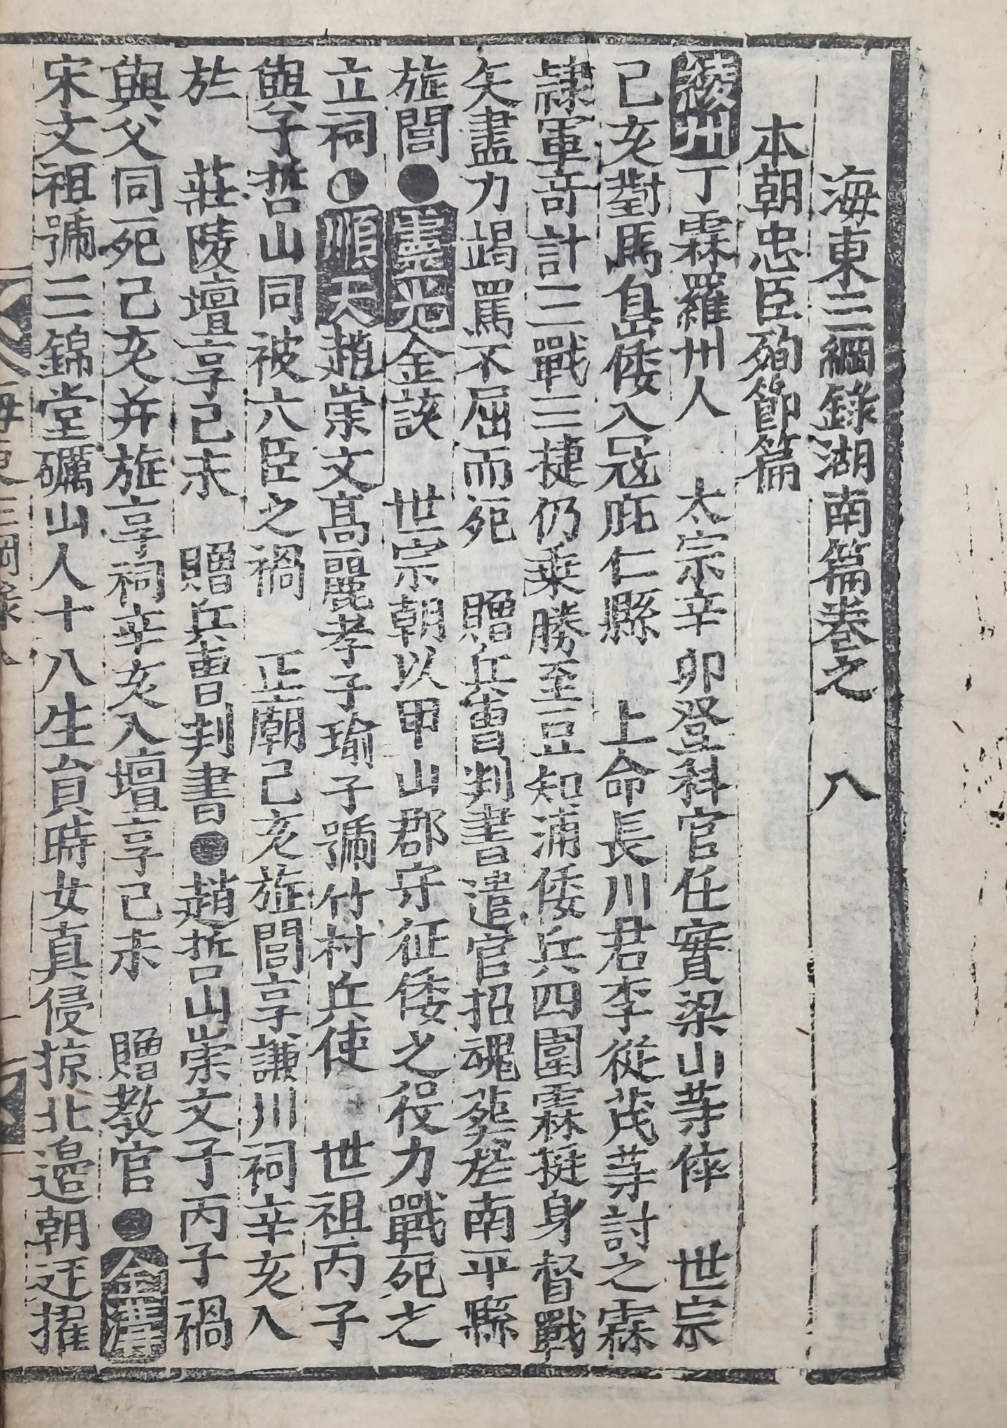 海東三綱錄湖南篇卷之 八
本朝忠臣殉節篇
綾州丁霖羅州人 太宗辛卯登科官任實梁山等倅 世宗
己亥對馬島倭入冦庇仁縣 上命長川君李從茂等討之霖
隷軍竒計三戰三捷仍乗勝至豆知浦倭兵四圍霖挺身督戰
矢盡力竭罵不屈而死 贈兵曹判書遣官招魂葬于南平縣
旌閭●靈光金該 世宗朝以甲山郡守征倭之役力戰死之
立祠●順天趙崇文髙麗孝子瑜子號竹村兵使 世祖丙子
與子哲山同被六臣之禍 正廟己亥旌閭享謙川祠辛亥入
於 莊陵壇享己未 贈兵曹判書●趙哲山崇文子丙子禍
與父同死己亥并旌享祠辛亥入壇享己未 贈教官●金溝
宋文祖號三錦堂礪山人十八生員時女真侵掠北邉朝廷擢
海東三綱錄